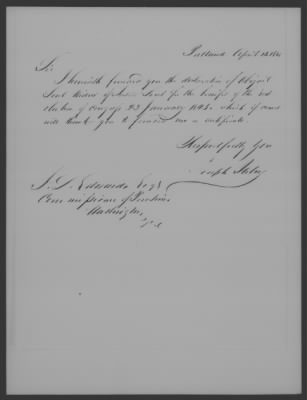 Portland April 18
Sir
I herewith forward you the declaration of Abigail
Lord Widow of Lord for the benefit of the
of Congress 23 January 1845. which if correct
will thank you to forward me a certificate
Respectfully You
Joseph
J. L. Edwards Esqr
Commissioner of Pensions
Washington
D.C.